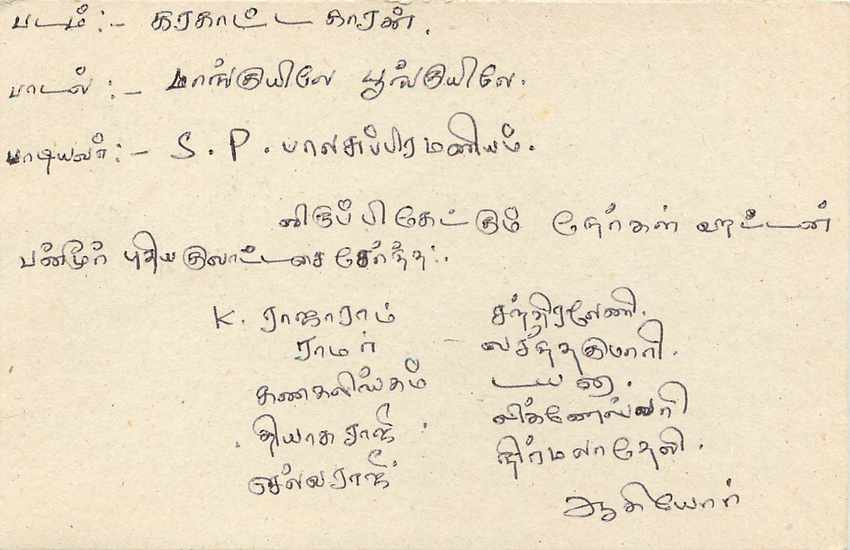 படம் :- கரகாட்ட காரன்.
பாடல் :- மாங்குயிலே பூங்குயிலே.
பாடியவர் :- S. P. பாலசுப்பிரமணியம்.
விருப்பி கேட்கும் நேர்கள் ஹட்டன்
பன்மூர் புதிய குவாட்டசை சேர்ந்த:.
K. ராஜாராம் சந்திரவேணி.
ராமர் - வசந்தகுமாரி.
கணகலிங்கம்
தியாகராஜ் விக்னேஸ்வரி
செல்வராஜ் நிர்மலாதேவி.
ஆகியோர்